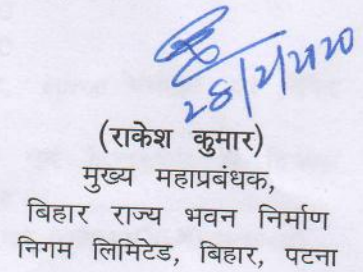 28/2/2020
(राकेश कुमार)
मुख्य महाप्रबंधक,
बिहार राज्य भवन निर्माण
निगम लिमिटेड, बिहार, पटना